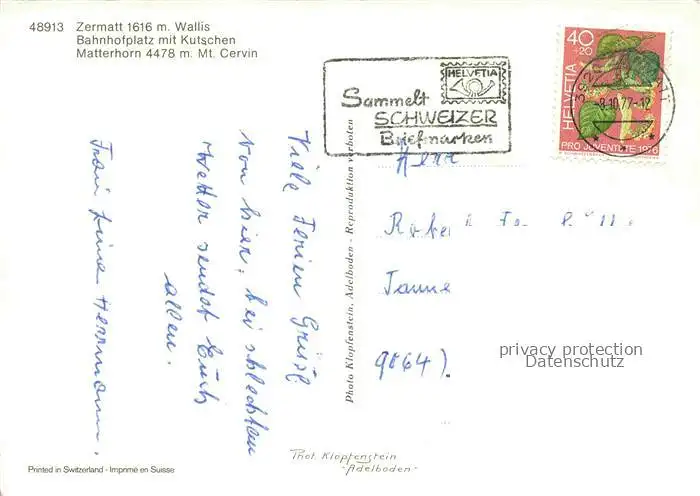 48913 Zermatt 1616 m. Wallis
Bahnhofplatz mit Kutschen
Matterhorn 4478 m. Mt. Cervin
HELVETIA
Sammelt
SCHWEIZER
Briefmarken
40
+20
HELVETIA
PRO JUVENTUTE 1976
-8.10.77-12
Herr
Tanne
9064).
Viele Ferien Grüße
von hier, bei schlechten
Wetter sendet Euch
allen.
Frau Herrmann.
Photo Klopfenstein, Adelboden - Reproduktion verboten
privacy protection
Datenschutz
Phot. Klopfenstein
-Adelboden-
Printed in Switzerland - Imprimé en Suisse